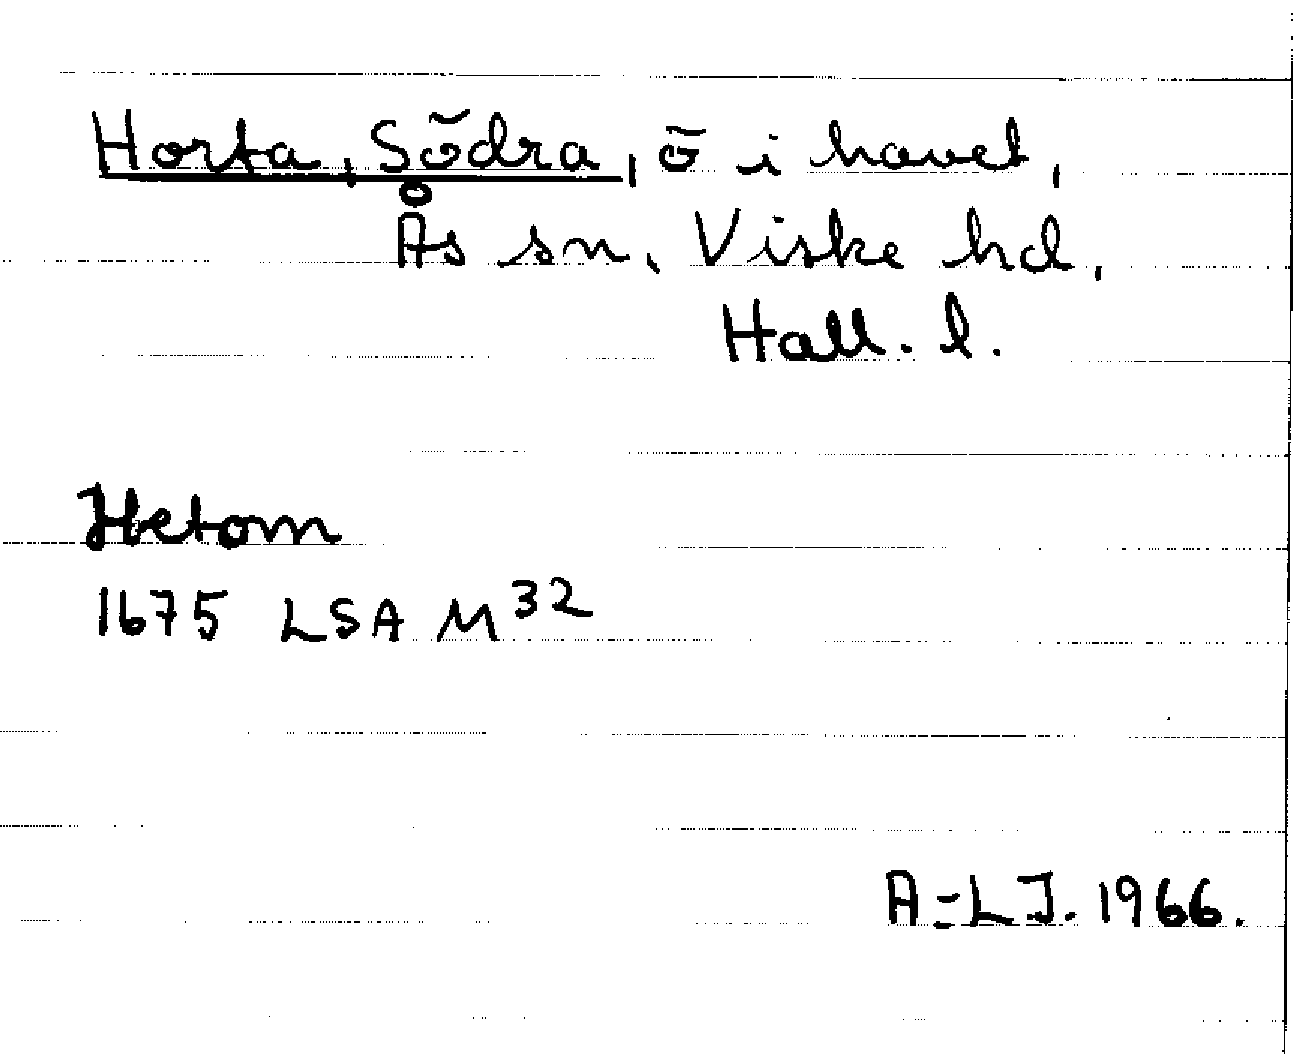 Horta, Södra, ö i havet,
Ås sn, Viske hd,
Hall. l.
Hetom
1675 LSA M 32
A-LJ. 1966.